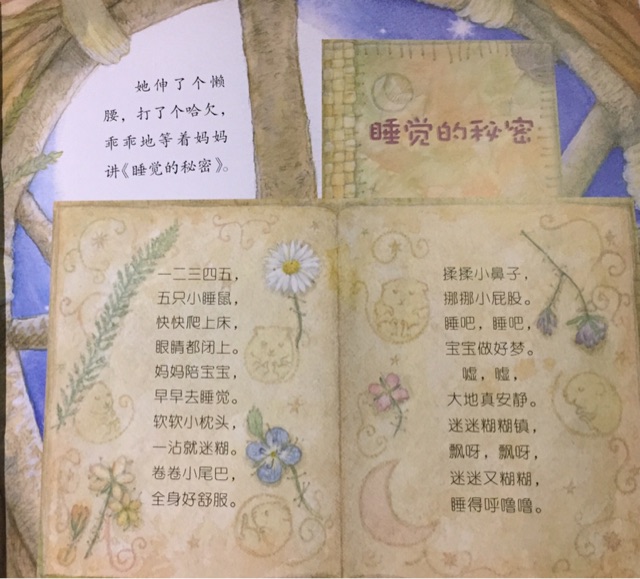 她伸了个懒
腰，打了个哈欠，
乖乖地等着妈妈
讲《睡觉的秘密》。
睡觉的秘密
一二三四五，
五只小睡鼠，
快快爬上床，
眼睛都闭上。
妈妈陪宝宝，
早早去睡觉。
软软小枕头，
一沾就迷糊。
卷卷小尾巴，
全身好舒服。
揉揉小鼻子，
挪挪小屁股。
睡吧，睡吧，
宝宝做好梦。
嘘，嘘，
大地真安静。
迷迷糊糊镇，
飘呀，飘呀，
迷迷又糊糊，
睡得呼噜噜。